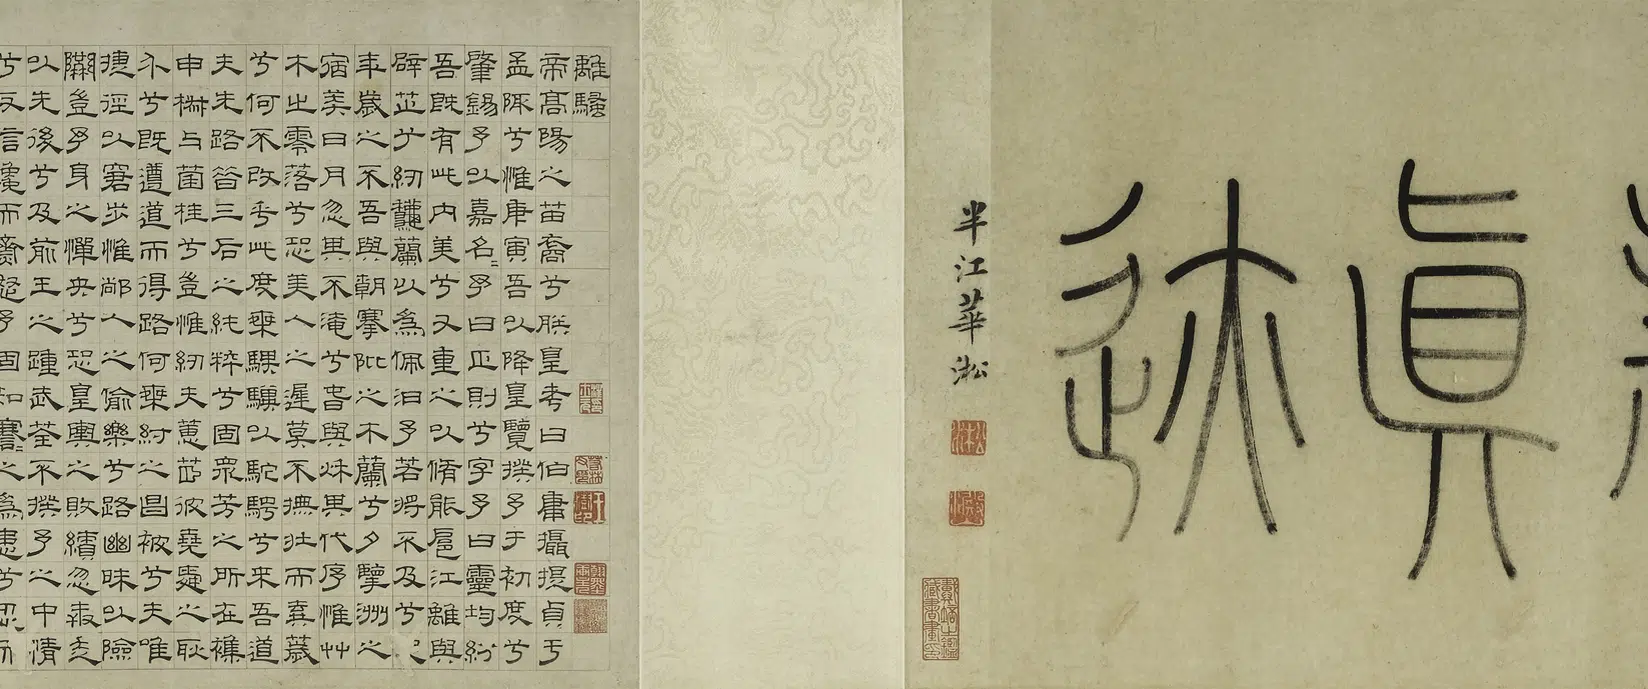 真
迹
半江華淞
離騷
帝高陽之苗裔兮朕皇考曰伯庸攝提貞于
孟陬兮惟庚寅吾以降皇覽揆予于初度兮
肇錫予以嘉名〻予曰正則兮字予曰靈均紛
吾既有此內美兮又重之以脩能扈江離與
辟芷兮紉龝蘭以為佩汩予若將不及兮
年歲之不吾與朝搴阰之木蘭兮夕擥洲之
宿莽日月忽其不淹兮春與秋其代序惟艸
木之零落兮恐美人之遲莫不撫壯而棄薉
兮何不改乎此度乘騏驥以駝騁兮來吾道
夫先路昔三后之純粹兮固衆芳之所在襍
申椒与菌桂兮豈惟紉夫蕙茝彼堯舜之耿
介兮既遵道而得路何桀紂之昌被兮夫唯
捷徑以窘步惟鄙人之偷樂兮路幽昧以險
隘豈予身之憚央兮恐皇輿之敗績忽奔走
以先後兮及前王之踵武荃不揆予之中情
兮反信讒而齌怒予固知謇〻之為患兮忍而